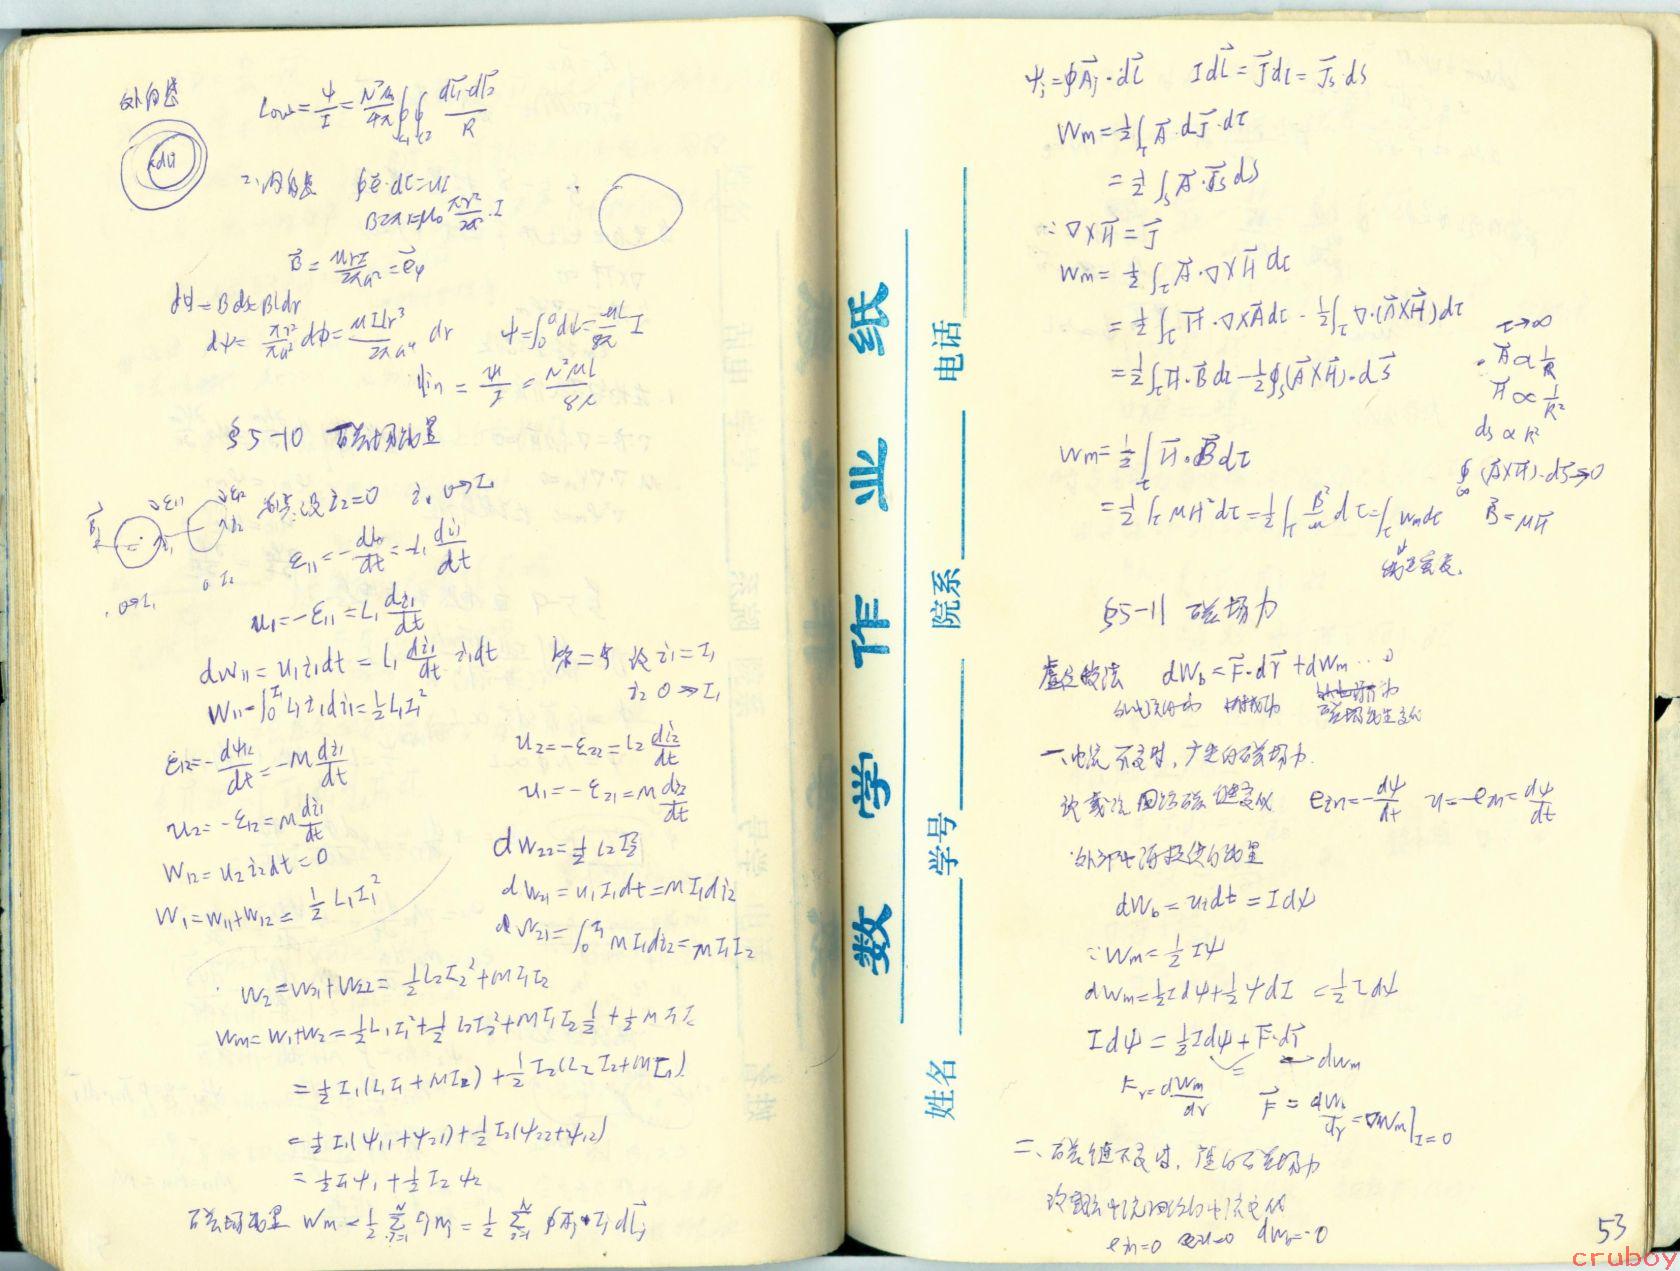 外自感
Lout = ψ/I = N²μ₀/4π ∮c₁∮c₂ dl⃗₁·dl⃗₂/R
二、内自感
B⃗ = μrI/2πa² = e⃗φ
dφ = Bds = Bldr
dψ = πr²/πa² dφ = μIlr³/2πa⁴ dr  ψ = ∫₀ᵃdψ = μL/8π I
Lin = ψ/I = N²μl/8π
§5-10 磁场能量
设 i₂=0  i₁ 0→I₁
ε₁₁ = -dψ₁₁/dt = -L₁ di₁/dt
u₁ = -ε₁₁ = L₁ di₁/dt
dW₁₁ = u₁i₁dt = L₁ di₁/dt i₁dt
W₁₁ = ∫₀^I₁ L₁i₁di₁ = ½L₁I₁²
ε₁₂ = -dψ₁₂/dt = -M di₁/dt
u₂ = -ε₁₂ = M di₁/dt
W₁₂ = u₂i₂dt = 0
W₁ = W₁₁+W₁₂ = ½ L₁I₁²
第二步 设 i₁=I₁
i₂ 0→I₂
u₂ = -ε₂₂ = L₂ di₂/dt
u₁ = -ε₂₁ = M di₂/dt
dW₂₂ = ½ L₂I₂²
dW₂₁ = u₁I₁dt = MI₁di₂
dW₂₁ = ∫₀^I₁ MI₁di₂ = MI₁I₂
W₂ = W₂₁+W₂₂ = ½L₂I₂²+MI₁I₂
Wm = W₁+W₂ = ½L₁I₁²+½L₂I₂²+MI₁I₂½+½MI₁I₂
= ½I₁(L₁I₁+MI₂)+½I₂(L₂I₂+MI₁)
= ½I₁(ψ₁₁+ψ₂₁)+½I₂(ψ₂₂+ψ₁₂)
= ½I₁ψ₁+½I₂ψ₂
磁场能量
数学作业纸
姓名 学号 院系 电话
ψⱼ = ∮A⃗ⱼ·dl⃗  Idl⃗ = J⃗dτ = J⃗s ds
Wm = ½∫τ A⃗·dJ⃗·dτ
= ½∫s A⃗·J⃗s ds
∵ ∇×H⃗ = J⃗
Wm = ½∫τ A⃗·∇×H⃗dτ
= ½∫τ H⃗·∇×A⃗dτ - ½∫τ ∇·(A⃗×H⃗)dτ
= ½∫τ H⃗·B⃗dτ - ½∮s(A⃗×H⃗)·dS⃗
τ→∞
A⃗ ∝ 1/R
H⃗ ∝ 1/R²
ds ∝ R²
∮∞ (A⃗×H⃗)·dS⃗→0
Wm = ½∫τ H⃗·B⃗dτ
= ½∫τ μH²dτ = ½∫τ B²/μ dτ = ∫τ wm dτ
B⃗ = μH⃗
能量密度.
§5-11 磁场力
虚位移法 dWb = F⃗·dr⃗ + dWm
一、电流不变时，产生的磁场力.
设载流回路磁链变化 ein = -dψ/dt u = -ein = dψ/dt
外部电源提供的能量
dWb = uidt = Idψ
∵ Wm = ½Iψ
dWm = ½Idψ+½ψdI = ½Idψ
Idψ = ½Idψ + F⃗·dr⃗
dWm
Fr = dWm/dr  F⃗ = dWm/dr = ∇Wm|I=0
二、磁链不变时，产生的磁场力
ein=0 dWb=0
53
cruboy